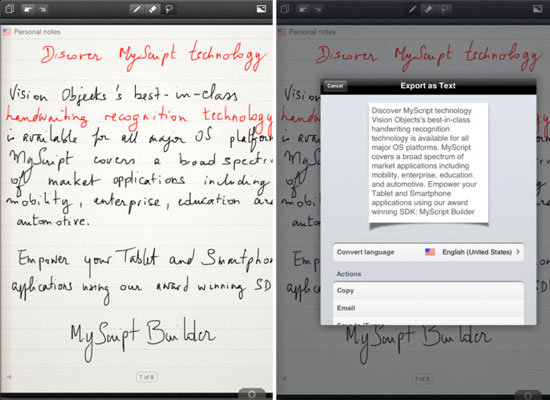 Personal notes
Discover MyScript technology
Vision Objects's best-in-class
handwriting recognition technology
is available for all major OS platform
MyScript covers a broad spectru
of market applications including
mobility, enterprise, education and
automotive.
Empower your Tablet and Smartphon
applications using our award winning SD
MyScript Builder
7 of 8
Personal notes
Cancel
Export as Text
Discover MyScript technology
Vision Objects's best-in-class
handwriting recognition
technology is available for all
major OS platforms. MyScript
covers a broad spectrum of
market applications including
mobility, enterprise, education
and automotive. Empower your
Tablet and Smartphone
applications using our award
winning SDK: MyScript Builder
Convert language English (United States)
Actions
Copy
Email
MyScript Builder
7 of 8